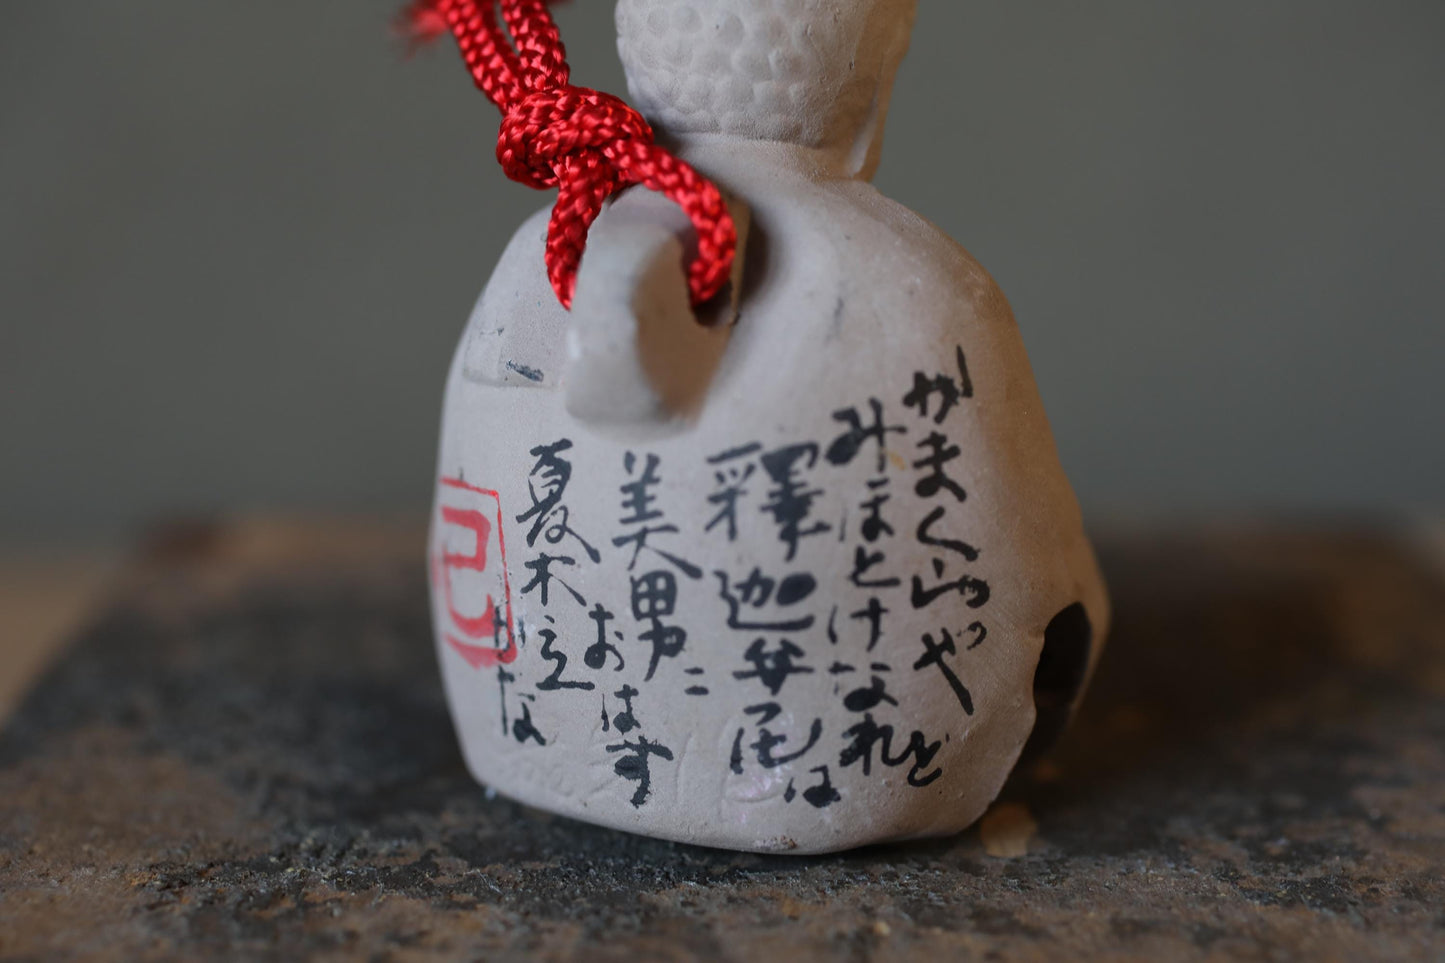 かまくらや
みほとけなれど
釋迦牟尼は
美男に
おはす
夏木立
かな